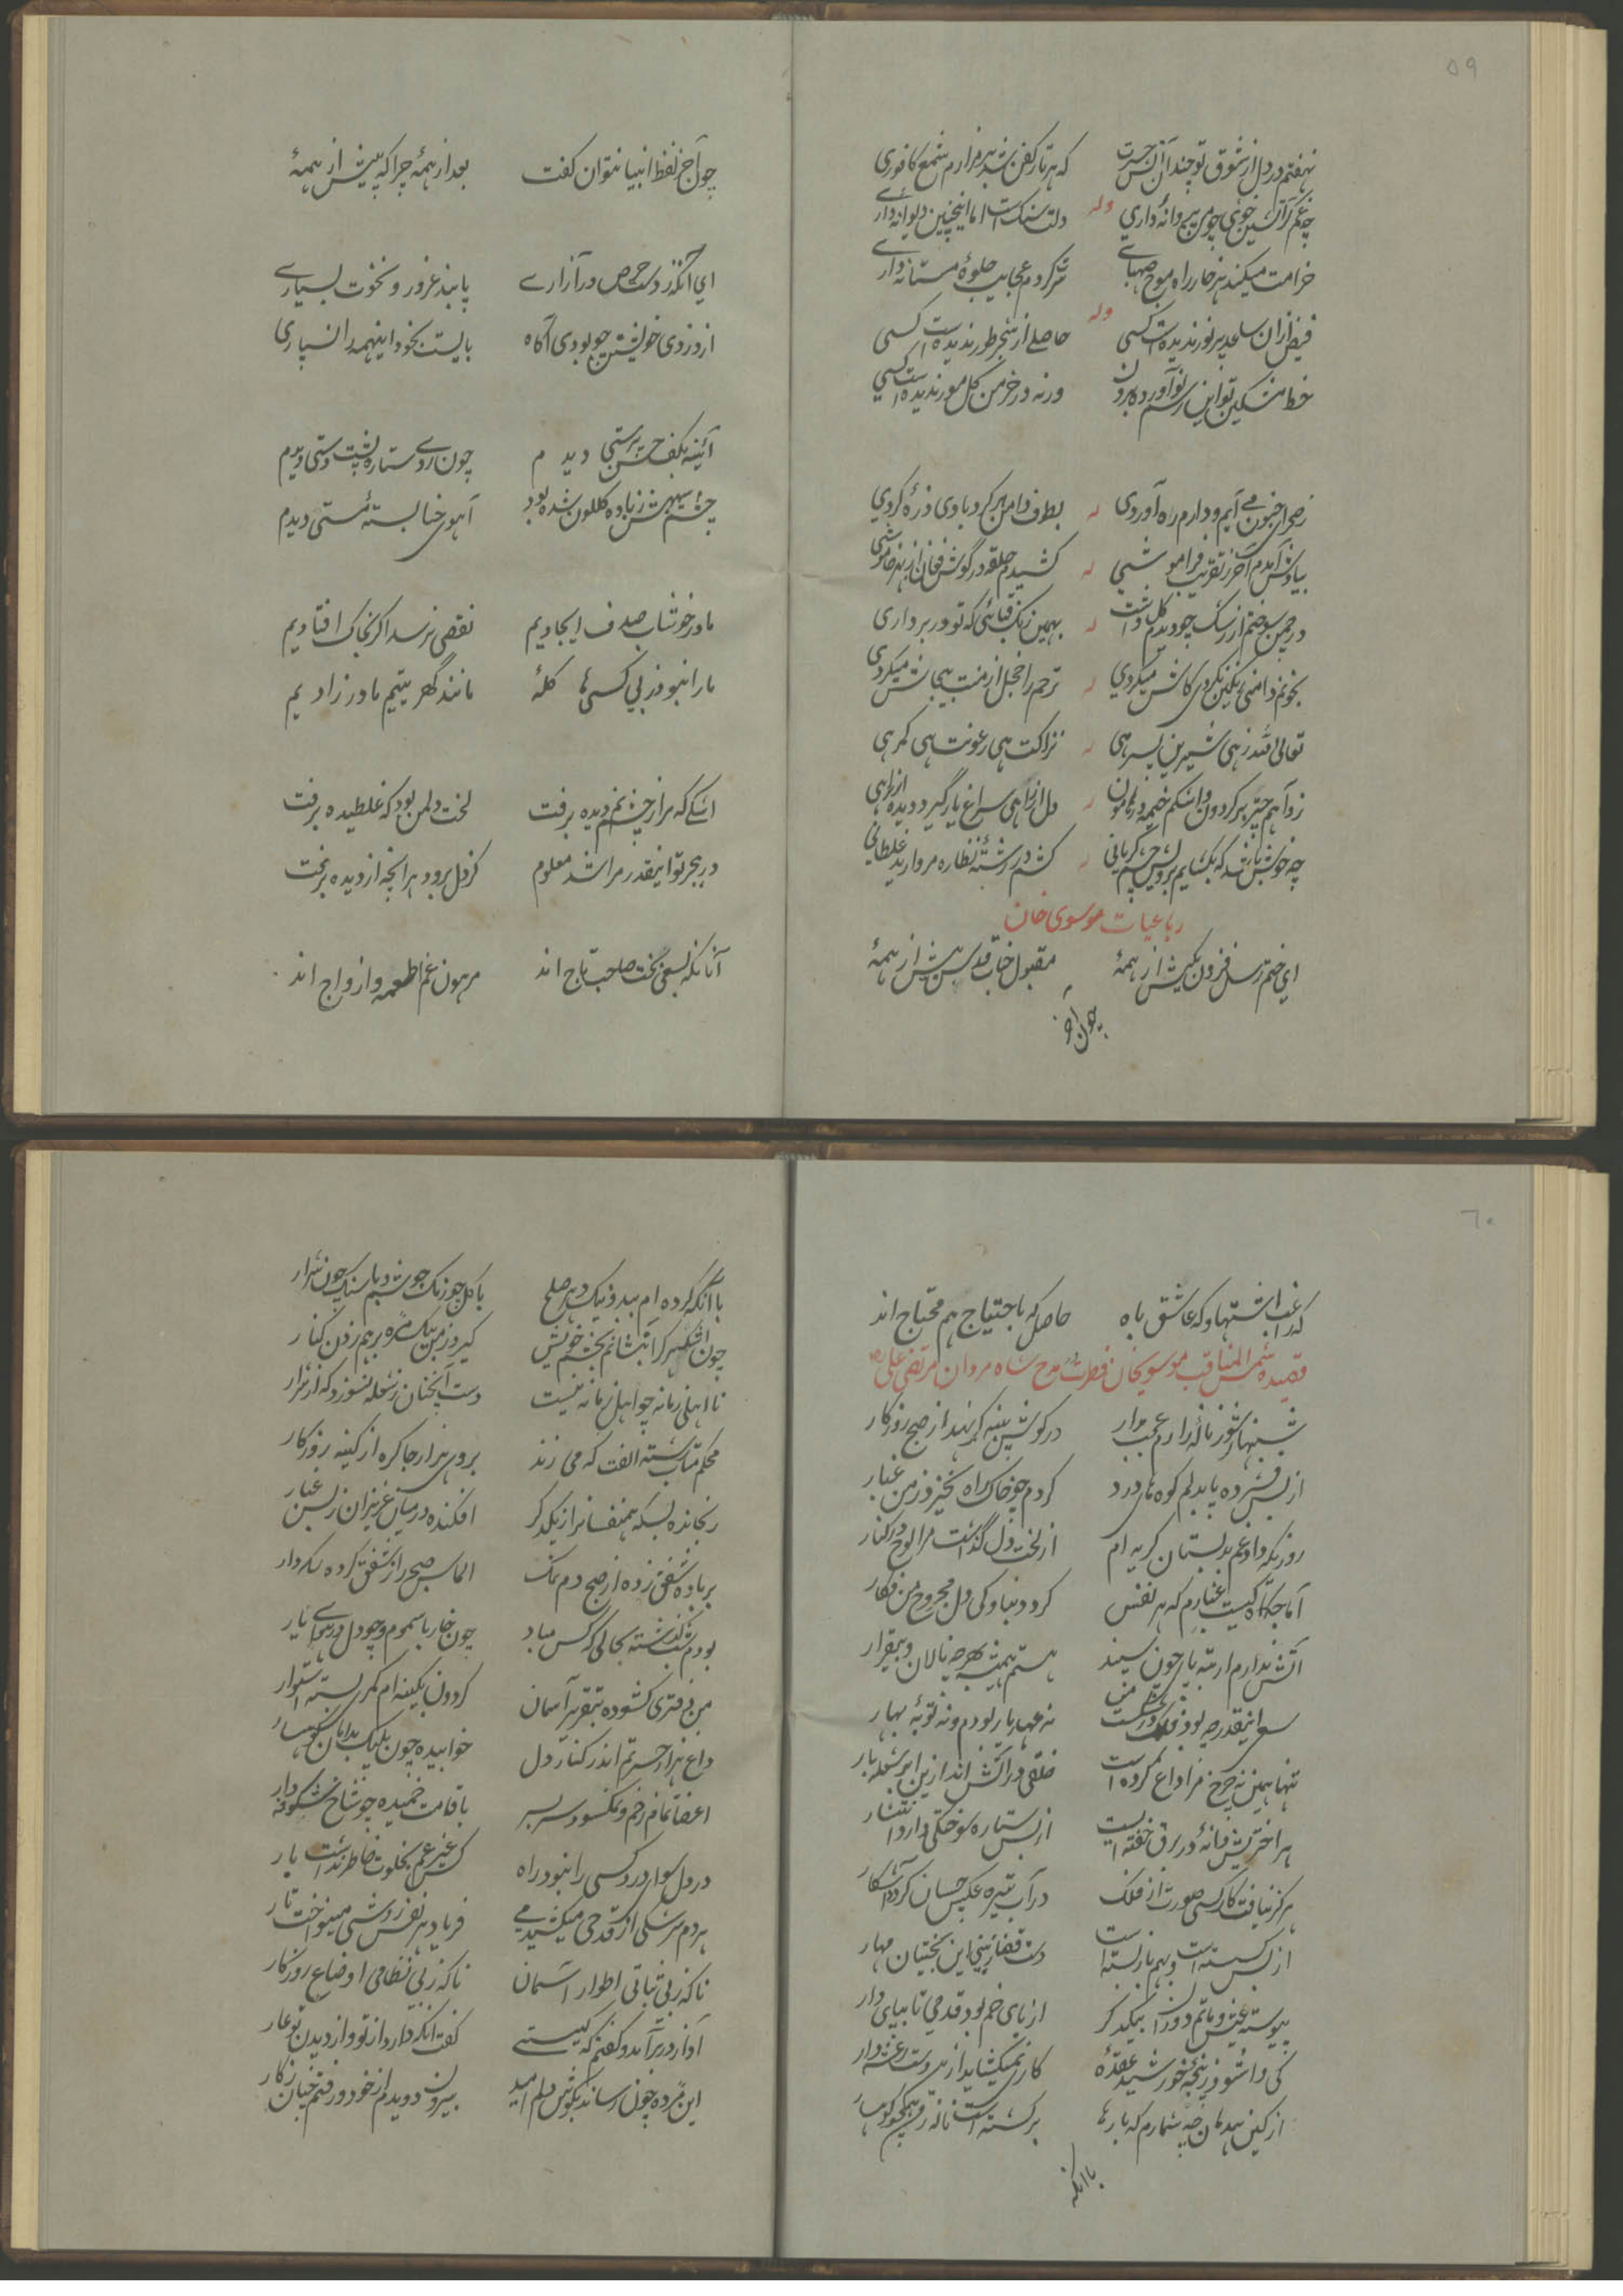 ۵۹
نهفتم در دل از شوق تو چندان حسرت
که هر تار کفن شد بر مزارم شمع کافوری
وله
چه غم گر آتشین خویی چو من پروانه داری
دلت سنگست اما اینچنین دیوانه داری
خرامت میکند هر خار را موج صهبائے
کردم عجایب جلوهٔ مستانه داری
وله
فیض ازان ساعد پرنور ندیده است کسی
حاصلے از شجر طور ندیده است کسی
خط مشکین تو این رسم نو آورد برون
ورنه در خرمن گل مور ندیده است کسی
ز صحرای جنون می آیم و دارم ره آوردی
له
بطرف دامن هر گردبادی ذره گردی
بیادش آمدم آخر ز تقریب فراموشی
له
کشیدم حلقه در گوش فغان از بند خاموشی
در چمن سوختم از رشک چو دیدم گل داشت
له
بهمین رنگ قبائی که تو در بر داری
بخونم دامنی رنگین نکردی کاش میکردی
له
ترحم را خجل از منت بیجاش میکردی
تعالی الله زهی شیرین پسر هی
له
نزاکت هی رعونت هی کمر هی
ز آهم چتر بر گردون و اشکم خیمه در هامون
له
دل از راهی سراغ یار گیرد دیده از راهی
چه خوش باشد که بگشایم برویش چشم گریانی
له
کشم در رشتهٔ نظاره مروارید غلطانی
رباعیات موسوی خان
ای ختم رسل فزون بکیش از همهٔ
مقبول جناب قدس بیش از همهٔ
چون آخر
چون آخر لفظ انبیا نتوان گفت
بعد از همهٔ چرا که پیش از همهٔ
ای آنکه ز دست حرص در آزارے
پابند غرور و نخوت بسیارے
از دزدی خویشتن چو بودی آگاه
بایست بخود اینهمه را نسپاری
آئینه بکف حسن پرستی دیدم
چون روے ستاره پشت دستی دیدم
چشم سیهش ز باده گلگون شده بود
آهوی حنا بستهٔ مستی دیدم
ما در خوشاب صدف ایجادیم
نقصی نرسد اگر بخاک افتادیم
ما را نبود ز بی کسی ها گلهٔ
مانند گهر یتیم مادر زادیم
اشکے که مرا ز چشم نم دیده برفت
لخت دلمن بود که غلطیده برفت
در هجر تو اینقدر مرا شد معلوم
کز دل برود هر آنچه از دیده برفت
آنانکه بسعی بخت صاحب تاج اند
مرهون غم اطعمه و ازواج اند
۶۰
که راغب اشتها و که عاشق باه
حاصل که باحتیاج هم محتاج اند
قصیده شمس المناقب موسویخان فطرت در مدح شاه مردان مرتضی علی
شبنهار شور ناله زارم عجب مدار
در گوش پنبه گر نهد از صبح روزگار
از بس فشرده پا بدلم کوه های درد
گردم چو خاک راه نخیزد ز من غبار
روزیکه داد غم بدبستان گریه ام
از لخت دل گذاشت مرا لوح در کنار
آماجگاه کیست غبارم که هر نفس
گردد دنباوکی دل مجروح من فگار
آتش ندارم ار ته پا چون سپند
هستم همیشه بهر چه نالان و بیقرار
سوا اینقدر چه بود فلک در شکست من
نه عهد یار بودم و نه توبهٔ بهار
تنها همین نه چرخ مرا داغ کرده است
خلقی در آتش اند ازین ابر شعله بار
هر اخترش فسانهٔ در برق خفته ایست
از بس ستاره سوختگی دارد انتشار
هرگز نیافت کار کسی صورت از فلک
در آب تیره عکس چسان گردد آشکار
از بس گسسته است و بهم باز بسته است
دست قضا ز بینی این بختیان مهار
پیوسته عیش و ماتم دوران بیکدگر
از پای خم بود قدمی تا بپای دار
کی وا شود ز پنجهٔ خورشید عقدهٔ
کاری نمیگشاید از دست رعشه دار
از کین نیلگون چه شمارم که بارها
برگشته است ناله من همچو کوهسار
باآنکه
باآنکه کرده ام ببد و نیک دهر صلح
با گل چو رنگ جوشم و با سنگ چون شرار
چون اشک هر کرا بنشانم بچشم خویش
گیرد ز من بیک مژه بر هم زدن کنار
نااهلی زمانه چو اهل زمانه نیست
دست آنچنان ز شعله نسوزد که از شرار
محکم متاب رشته الفت که می زند
بروی هزار جا گره از کینه روزگار
رنجانده بسکه همنفسانرا ز یکدگر
افکنده در میان عزیزان ز بس غبار
بر باده شفق زده از صبح دم نمک
الماس صبح را ز شفق کرده لکه دار
بودم نشسته بحالی که کس مباد
چون خار با سموم و چو دل در هوای یار
من دفتری گشوده بتقریر آسمان
گردون بکینه ام کمر بسته استوار
داغ هزار حسرتم اندر کنار دل
خوابیده چون پلنگ بدامان کوهسار
اعضا تمام زخم و نمکسود سر بسر
با قامت خمیده چو شاخ شکوفه دار
در دل سوای درد کسی را نبود راه
کس غیر غم بخلوت خاطر نداشت بار
هر دم سرشکی از قدحی میکشید مے
فریاد هر نفس روشی مینواخت تار
ناگه ز بی ثباتی اطوار آسمان
ناگه ز بی نظامی اوضاع روزگار
آواز در بر آمد و گفتم که کیستے
گفت آنکه دارد از تو و از دیدن تو عار
این مژده چون رساند بگوش دلم امید
بیرون دویدم از خود و رفتم چنان ز کار